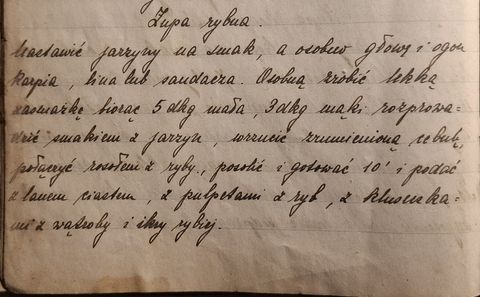 Zupa rybna.
Nastawić jarzyny na smak, a osobno głowę i ogon
karpia, lina lub sandacza. Osobną zrobić lekką
zasmażkę biorąc 5 dkg masła, 3 dkg mąki rozprowa-
dzić smakiem z jarzyn, wrzucić zrumienioną cebulę,
połączyć rosołem z ryby, posolić i gotować 10' i podać
z lanem ciastem, z pulpetami z ryb, z kluseczka-
mi z wątroby i ikry rybiej.